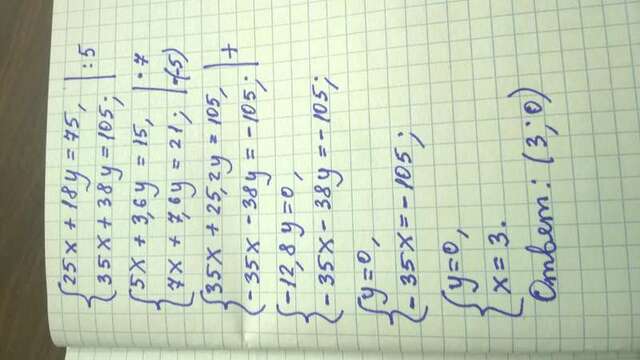 {25x + 18y = 75, | : 5
35x + 38y = 105;
{5x + 3,6y = 15, | · 7
7x + 7,6y = 21; | ·(-5)
{35x + 25,2y = 105, | +
-35x - 38y = -105;
{-12,8y = 0,
-35x - 38y = -105;
{y = 0,
-35x = -105;
{y = 0,
x = 3.
Ответ: (3; 0)